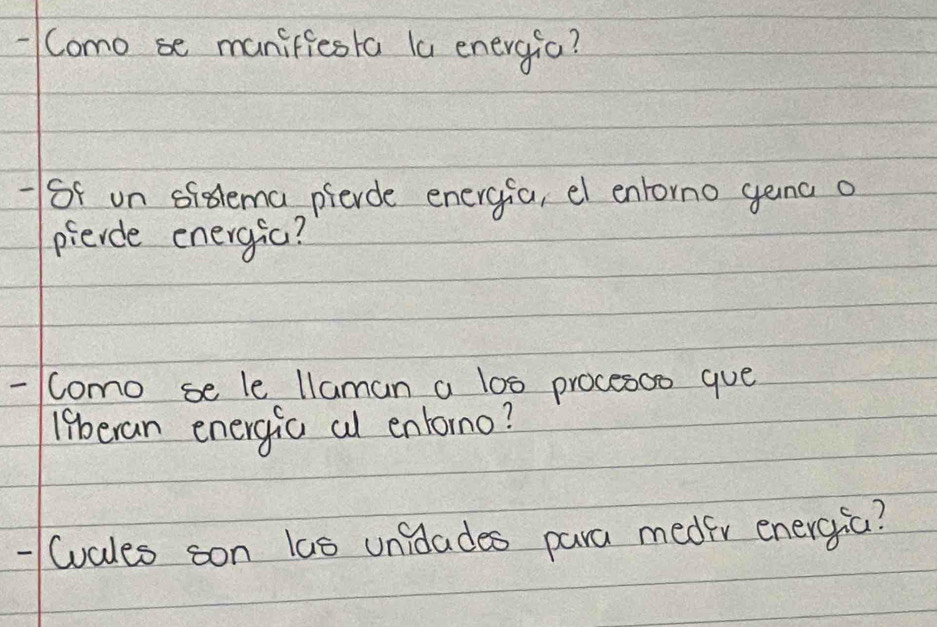 - Como se manifiesta la energía?
- Si un sistema pierde energía, el entorno gana o
pierde energía?
- Como se le llaman a los procesos que
liberan energía al entorno?
- Cuales son las unidades para medir energía?